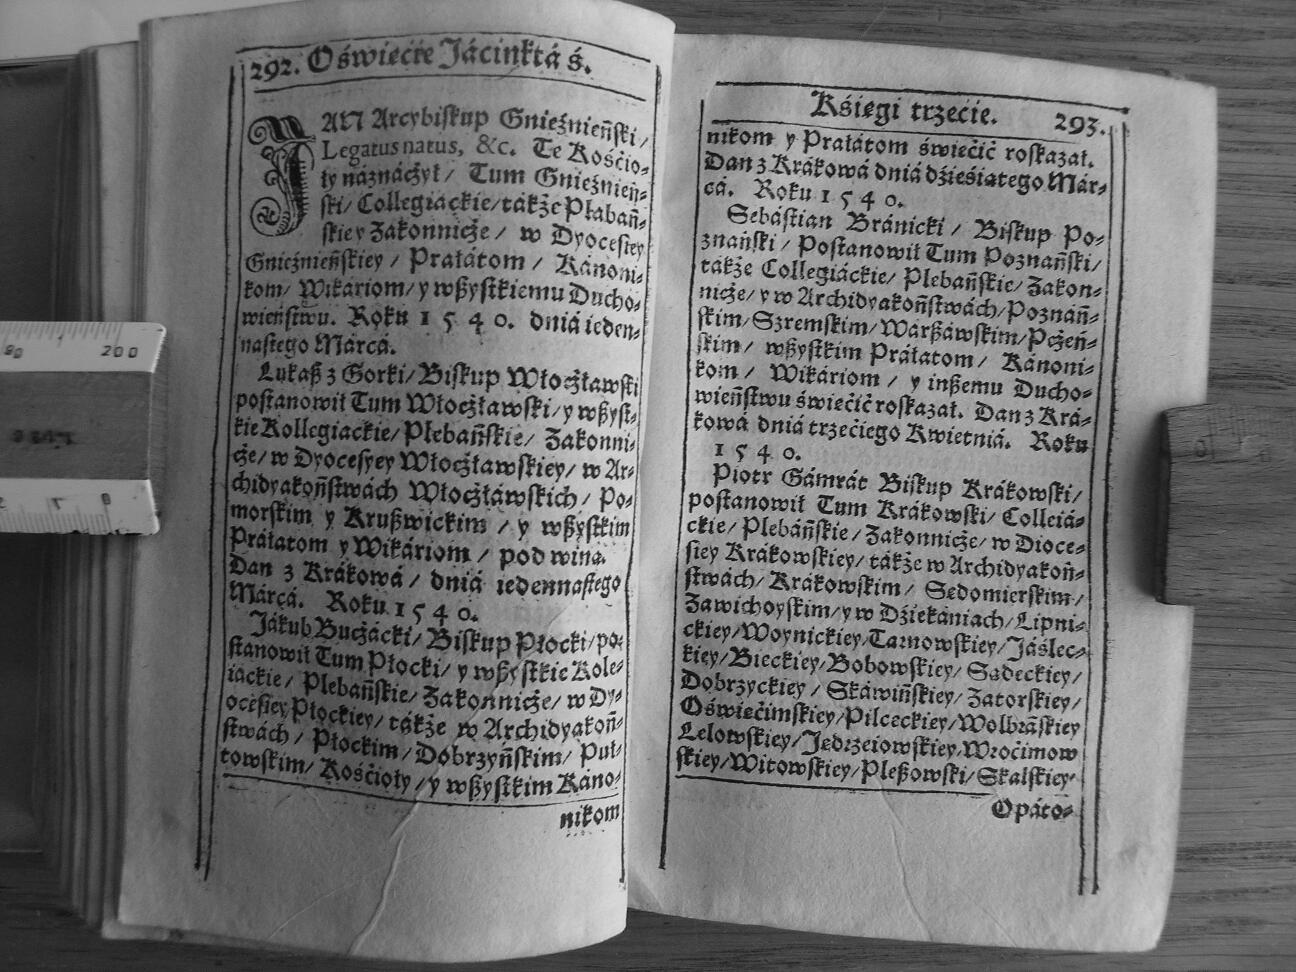 292. O świećie Jácinktá ś.
JAN Arcybiskup Gnieźnieński/
Legatus natus, &c. Te Kośćio-
ły náznáczył/ Tum Gnieźnień-
ski/ Collegiáckie/ tákże Plabań-
skie y Zakonnicze/ w Dyocesiey
Gnieźnieńskiey/ Práłátom/ Kánoni-
kom/ Wikáriom/ y wßystkiemu Ducho-
wieństwu. Roku 1540. dniá ieden-
nastego Márcá.
Lukaß z Gorki/ Biskup Włoczławski
postanowił Tum Włoczławski/ y wßyst-
kie Kollegiackie/ Plebańskie/ Zakonni-
cze/ w Dyocesyey Włoczławskiey/ w Ar-
chidyakoństwách Włoczłáwskich/ Po-
morskim y Krußwickim/ y wßystkim
Práłatom y Wikáriom/ pod winą.
Dan z Krákowá/ dniá iedennastego
Márcá. Roku 1540.
Jákub Bucżácki/ Biskup Płocki/ po-
stanowił Tum Płocki/ y wßystkie Kole-
iáckie/ Plebańskie/ Zakonnicże/ w Dy-
ocesiey Płockiey/ tákże w Archidyakoń-
stwách/ Płockim/ Dobrzyńskim/ Puł-
towskim/ Kośćioły/ y wßystkim Káno-
nikom
Kśięgi trzećie. 293.
nikom y Práłátom świećić roskazał.
Dan z Krákowá dniá dźieśiątego Már-
cá. Roku 1540.
Sebástian Bránicki/ Biskup Po-
znański/ Postanowił Tum Poznański/
tákże Collegiáckie/ Plebańskie/ Zakon-
nicże/ y w Archidyakoństwách/ Poznáń-
skim/ Szremskim/ Wárßáwskim/ Pcżeń-
skim/ wßystkim Práłatom/ Kánoni-
kom/ Wikáriom/ y inßemu Ducho-
wieństwu świećić roskazał. Dan z Krá-
kowá dniá trzećiego Kwietniá. Roku
1540.
Piotr Gámrát Biskup Krákowski/
postanowił Tum Krákowski/ Colleiá-
ckie/ Plebáńskie/ Zakonnicże/ w Dioce-
siey Krákowskiey/ tákże w Archidyakoń-
stwách/ Krákowskim/ Sędomierskim/
Zawichoyskim/ y w Dźiekániach/ Lipni-
ckiey/ Woynickiey/ Tarnowskiey/ Jáślec-
kiey/ Bieckiey/ Bobowskiey/ Sądeckiey/
Dobrzyckiey/ Skáwińskiey/ Zatorskiey/
Oświećimskiey/ Pilceckiey/ Wolbrãskiey
Lelowskiey/ Jędrzeiowskiey/ Wroćimow
skiey/ Witowskiey/ Pleßowski/ Skalskiey
Opáto-